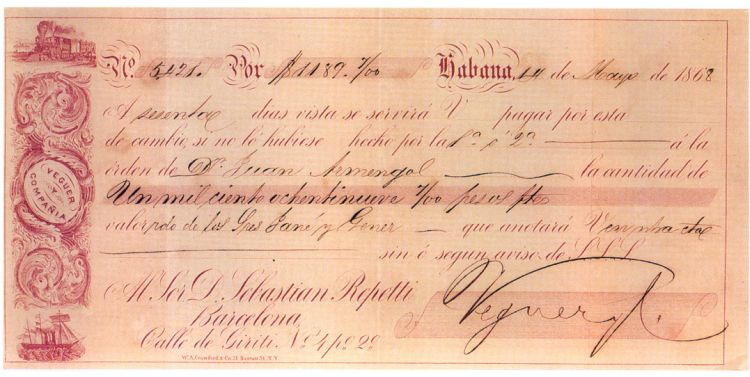 Nº 5421. Por $ 1189. 7/00 Habana, 14 de Mayo de 1868
A sesenta dias vista se servirá V pagar por esta
de cambio, si no lo hubiese hecho por la 1ª ó 2ª á la
órden de Dn. Juan Armengol la cantidad de
Un mil ciento ochentinueve 7/00 pesos ftes
valor rdo de los Sres Jané y Gener que anotará V en nbra cta
sin ó segun aviso de S.S.S.
VEGUER
Y
COMPAÑIA
Al Sor. D. Sebastian Repetti
Barcelona,
Calle de Giriti Nº 4 pº 2º
Veguer y Ca.
W. A. Crawford & Co. 21 Beaver St. N.Y.